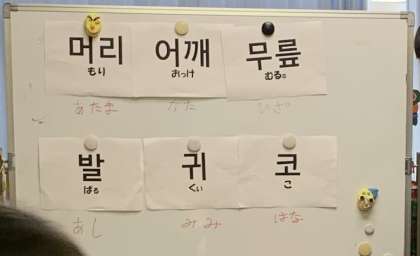 머리 어깨 무릎
もり おっけ むるㇷ゚
あたま かた ひざ
발 귀 코
ぱる くい こ
あし みみ はな